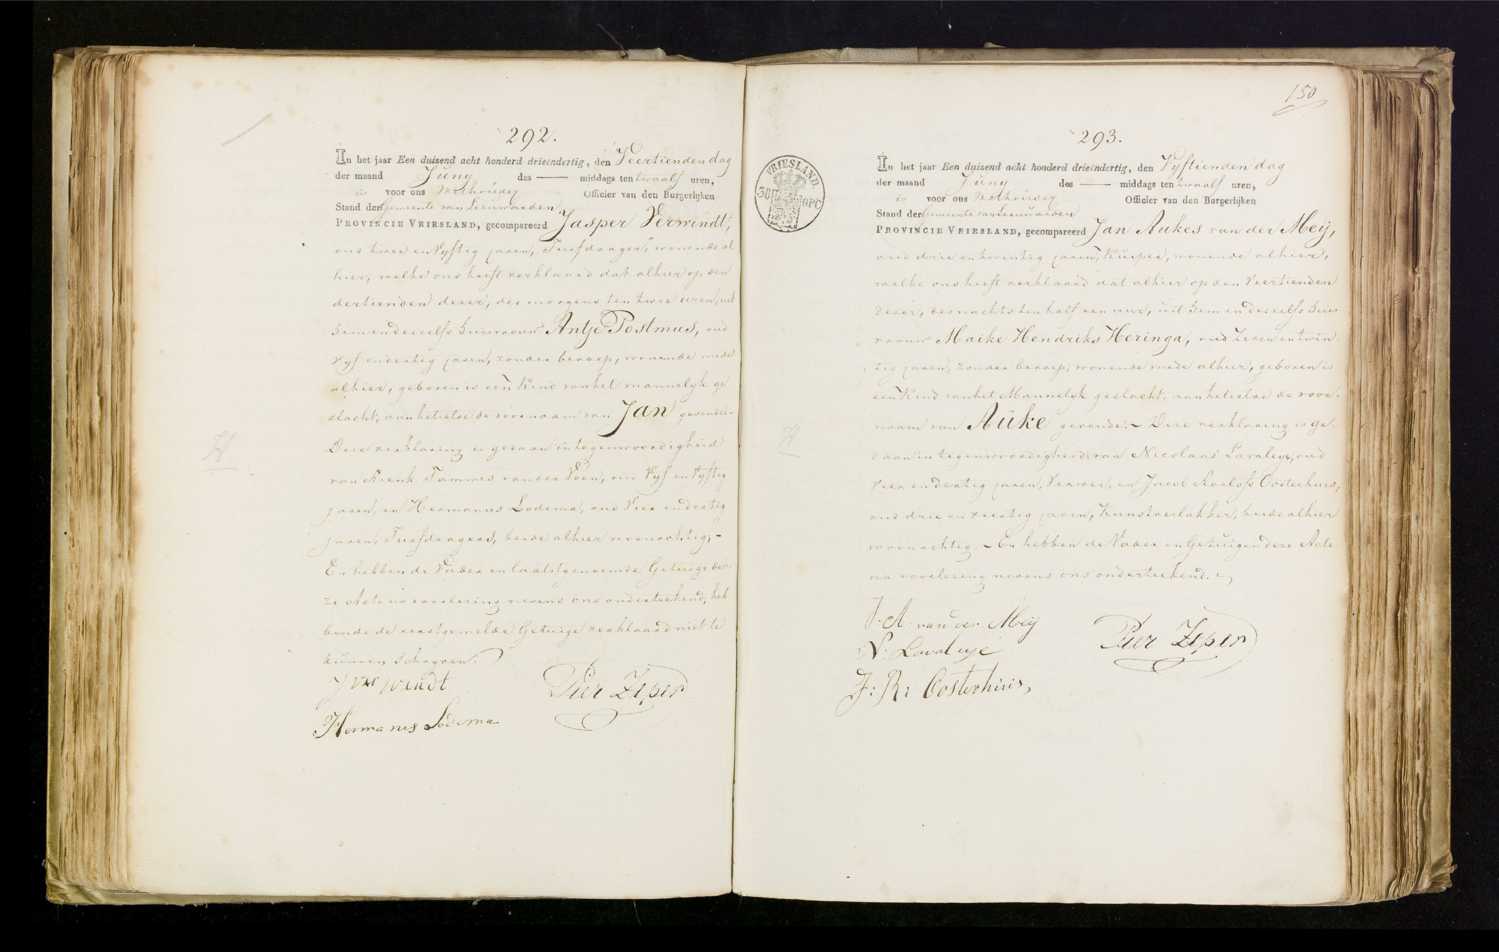 292.
In het jaar Een duizend acht honderd drieëndertig, den Veertienden dag
der maand Juny des — middags ten twaalf uren,
is voor ons Wethouder Officier van den Burgerlijken
Stand der gemeente van Leeuwarden,
PROVINCIE VRIESLAND, gecompareerd Jasper Verwindt,
oud twee en Vyftig jaren, Turfdrager, wonende al
hier, welke ons heeft verklaard dat alhier op den
dertienden dezer, des morgens ten twee uren, uit
hem en deszelfs huisvrouw Antje Postmus, oud
vyf en dertig jaren, zonder beroep, wonende mede
alhier, geboren is een Kind van het mannelyk ge
slacht, aan hetwelk de voornaam van Jan gevende.
Deze verklaring is gedaan in tegenwoordigheid
van Tammes van der Veen, oud Vyf en Vyftig
jaren, en Hermanus Lodema, oud Vier en dertig
jaren, Turfdragers, beide alhier woonachtig. –
En hebben de Vader en laatstgenoemde Getuige de-
ze Acte na voorlezing nevens ons onderteekend, heb
bende de eerstgemelde Getuige verklaard niet te
kunnen schryven.
J Verwindt
Pier Zeper
Hermanus Lodema
150
293.
VRIESLAND
In het jaar Een duizend acht honderd drieëndertig, den Vyftienden dag
der maand Juny des — middags ten twaalf uren,
is voor ons Wethouder Officier van den Burgerlijken
Stand der gemeente van Leeuwarden
PROVINCIE VRIESLAND, gecompareerd Jan Aukes van der Meij,
oud drie en twintig jaren, Kuiper, wonende alhier,
welke ons heeft verklaard dat alhier op den Veertienden
dezer, des nachts ten half een uur, uit hem en deszelfs huis
vrouw Maike Hendriks Heringa, oud zeven en twin
tig jaren, zonder beroep, wonende mede alhier, geboren is
een Kind van het Mannelyk geslacht, aan hetwelk de voor-
naam van Auke gevende. – Deze verklaring is ge
daan in tegenwoordigheid van Nicolaas Lavaleye, oud
Vier en dertig jaren, Verwer, en Jacob Roelofs Oosterhuis,
oud drie en veertig jaren, Kunstverlakker, beide alhier
woonachtig. – En hebben de Vader en Getuigen deze Acte
na voorlezing nevens ons onderteekend.
J. A. van der Meij
Pier Zeper
N. Lavaleye
J: R: Oosterhuis,